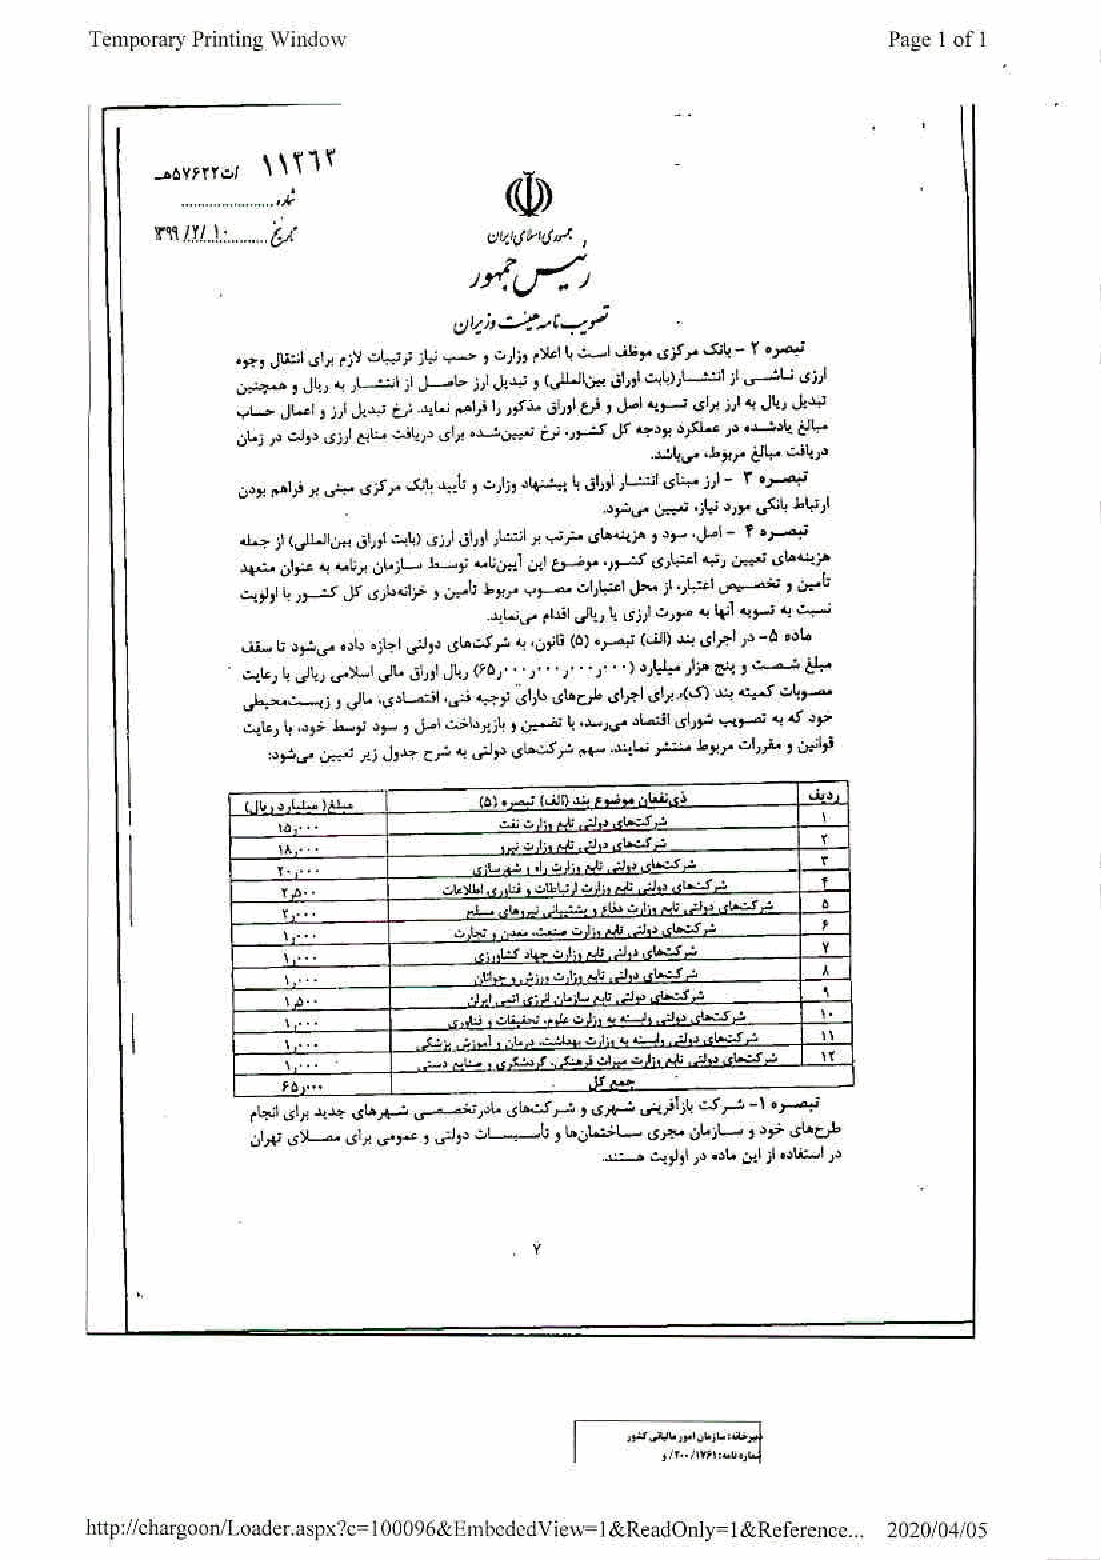 Temporary Printing Window
Page 1 of 1
۱۱۲۶۳ /ت۵۷۶۲۲هـ
شماره
تاریخ ۱۳۹۹/۲/۱۰
جمهوری اسلامی ایران
رئیس جمهور
تصویب نامه هیئت وزیران
تبصره ۲ - بانک مرکزی موظف است با اعلام وزارت و حسب نیاز ترتیبات لازم برای انتقال وجوه
ارزی ناشی از انتشار(بابت اوراق بین‌المللی) و تبدیل ارز حاصل از انتشار به ریال و همچنین
تبدیل ریال به ارز برای تسویه اصل و فرع اوراق مذکور را فراهم نماید. نرخ تبدیل ارز و اعمال حساب
مبالغ یادشده در عملکرد بودجه کل کشور، نرخ تعیین‌شده برای دریافت منابع ارزی دولت در زمان
دریافت مبالغ مربوط، می‌باشد.
تبصره ۳ - ارز مبنای انتشار اوراق با پیشنهاد وزارت و تأیید بانک مرکزی مبنی بر فراهم بودن
ارتباط بانکی مورد نیاز، تعیین می‌شود.
تبصره ۴ - اصل، سود و هزینه‌های مترتب بر انتشار اوراق ارزی (بابت اوراق بین‌المللی) از جمله
هزینه‌های تعیین رتبه اعتباری کشور، موضوع این آیین‌نامه توسط سازمان برنامه به عنوان متعهد
تأمین و تخصیص اعتبار، از محل اعتبارات مصوب مربوط تأمین و خزانه‌داری کل کشور با اولویت
نسبت به تسویه آنها به صورت ارزی یا ریالی اقدام می‌نماید.
ماده ۵- در اجرای بند (الف) تبصره (۵) قانون، به شرکت‌های دولتی اجازه داده می‌شود تا سقف
مبلغ شصت و پنج هزار میلیارد (۶۵,۰۰۰,۰۰۰,۰۰۰,۰۰۰) ریال اوراق مالی اسلامی ریالی با رعایت
مصوبات کمیته بند (ک)، برای اجرای طرح‌های دارای توجیه فنی، اقتصادی، مالی و زیست‌محیطی
خود که به تصویب شورای اقتصاد می‌رسد، با تضمین و بازپرداخت اصل و سود توسط خود، با رعایت
قوانین و مقررات مربوط منتشر نمایند. سهم شرکت‌های دولتی به شرح جدول زیر تعیین می‌شود:
ردیف ذی‌نفعان موضوع بند (الف) تبصره (۵) مبلغ( میلیارد ریال)
۱ شرکت‌های دولتی تابع وزارت نفت ۱۵,۰۰۰
۲ شرکت‌های دولتی تابع وزارت نیرو ۱۸,۰۰۰
۳ شرکت‌های دولتی تابع وزارت راه و شهرسازی ۲۰,۰۰۰
۴ شرکت‌های دولتی تابع وزارت ارتباطات و فناوری اطلاعات ۲,۵۰۰
۵ شرکت‌های دولتی تابع وزارت دفاع و پشتیبانی نیروهای مسلح ۲,۰۰۰
۶ شرکت‌های دولتی تابع وزارت صنعت، معدن و تجارت ۱,۰۰۰
۷ شرکت‌های دولتی تابع وزارت جهاد کشاورزی ۱,۰۰۰
۸ شرکت‌های دولتی تابع وزارت ورزش و جوانان ۱,۰۰۰
۹ شرکت‌های دولتی تابع سازمان انرژی اتمی ایران ۱,۵۰۰
۱۰ شرکت‌های دولتی وابسته به وزارت علوم، تحقیقات و فناوری ۱,۰۰۰
۱۱ شرکت‌های دولتی وابسته به وزارت بهداشت، درمان و آموزش پزشکی ۱,۰۰۰
۱۲ شرکت‌های دولتی تابع وزارت میراث فرهنگی، گردشگری و صنایع دستی ۱,۰۰۰
جمع کل ۶۵,۰۰۰
تبصره ۱- شرکت بازآفرینی شهری و شرکت‌های مادرتخصصی شهرهای جدید برای انجام
طرح‌های خود و سازمان مجری ساختمان‌ها و تأسیسات دولتی و عمومی برای مصلای تهران
در استفاده از این ماده در اولویت هستند.
۷
دبیرخانه: سازمان امور مالیاتی کشور
شماره نامه: ۲۰۰/۱۷۶۱/و
http://chargoon/Loader.aspx?c=100096&EmbededView=1&ReadOnly=1&Reference...
2020/04/05